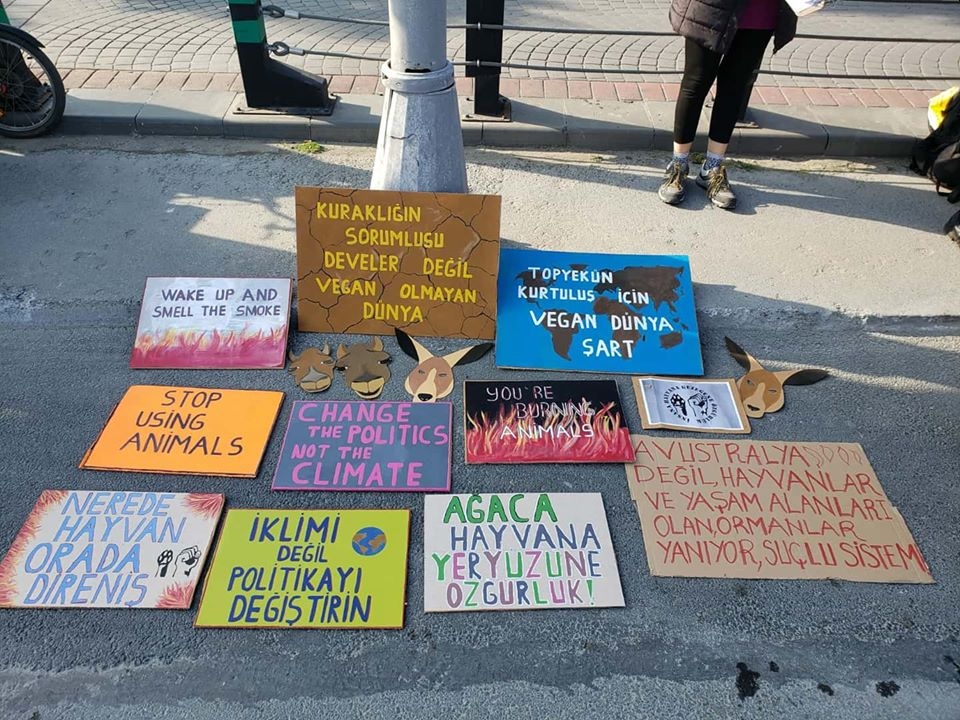 KURAKLIĞIN
SORUMLUSU
DEVELER DEĞİL
VEGAN OLMAYAN
DÜNYA
TOPYEKÜN
KURTULUŞ İÇİN
VEGAN DÜNYA
ŞART
WAKE UP AND
SMELL THE SMOKE
STOP
USING
ANIMALS
CHANGE
THE POLITICS
NOT THE
CLIMATE
YOU'RE
BURNING
ANIMALS
AVUSTRALYA
DEĞİL, HAYVANLAR
VE YAŞAM ALANLARI
OLAN, ORMANLAR
YANIYOR, SUÇLU SİSTEM
NEREDE
HAYVAN
ORADA
DİRENİŞ
İKLİMİ
DEĞİL
POLİTİKAYI
DEĞİŞTİRİN
AĞACA
HAYVANA
YERYÜZÜNE
ÖZGÜRLÜK!